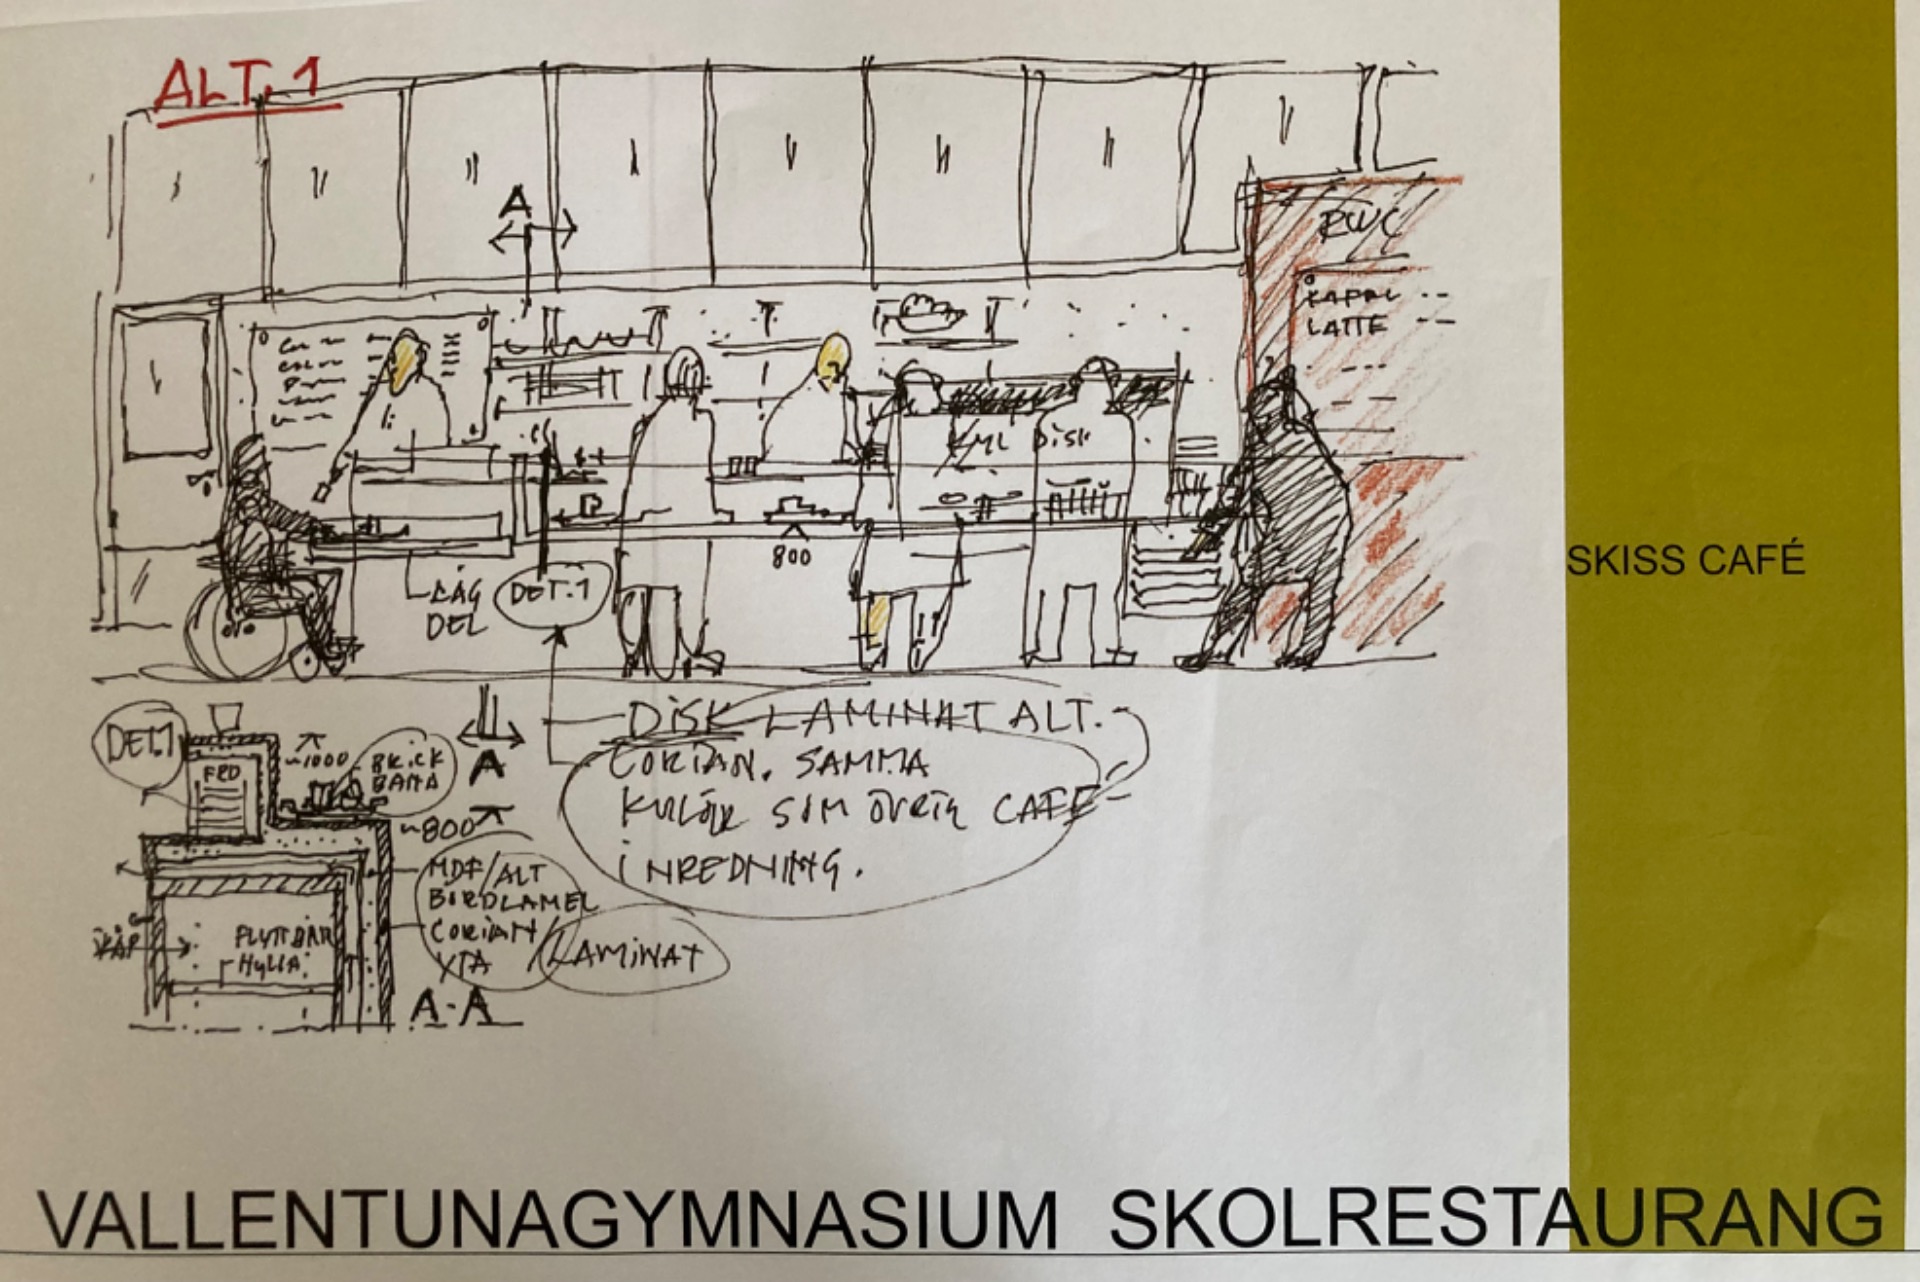 ALT. 1
A
RWC
LATTE
KYL DISK
800
LÅG
DEL
DET. 1
DISK LAMINAT ALT.
CORIAN. SAMMA
KULÖR SOM ÖVRIG CAFE-
INREDNING.
A
DET.1
~1000
BRICK
BANA
~800
MDF/ALT
BORDLAMEL
CORIAN/
YTA
LAMINAT
SKÅP
FLYTTBAR
HYLLA
A-A
SKISS CAFÉ
VALLENTUNAGYMNASIUM SKOLRESTAURANG